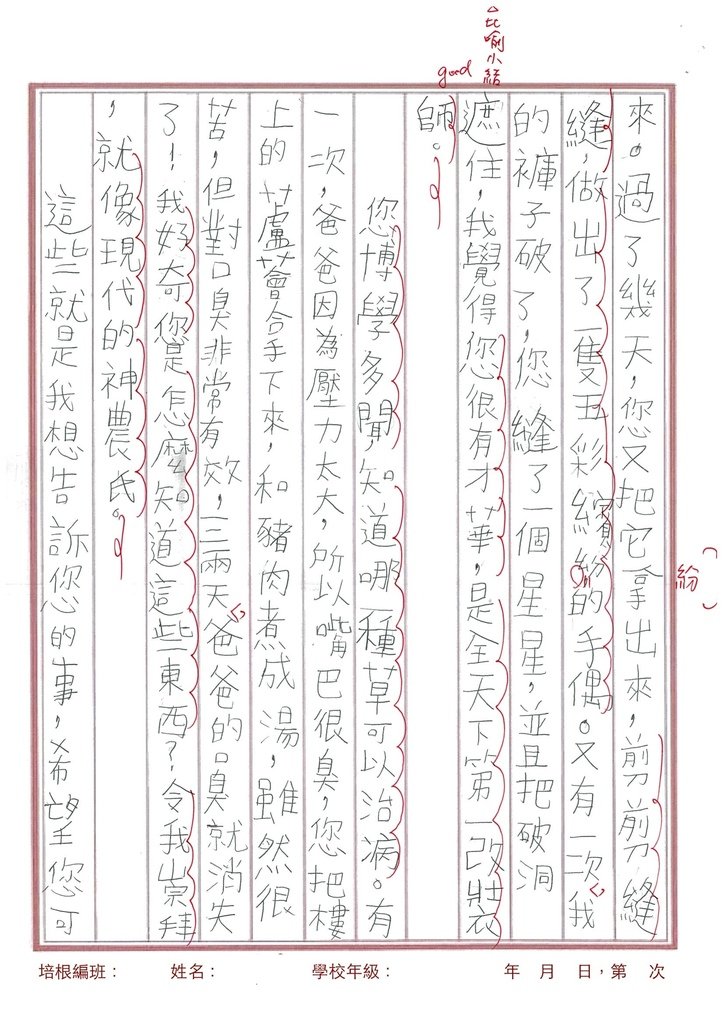 比喻小結
good
來。過了幾天，您又把它拿出來，剪剪縫
縫，做出了一隻五彩繽紛的手偶。又有一次我
紛
的褲子破了，您縫了一個星星，並且把破洞
遮住，我覺得您很有才華，是全天下第一改裝
師。
您博學多聞，知道哪一種草可以治病。有
一次，爸爸因為壓力太大，所以嘴巴很臭，您把樓
上的蘆薈合手下來，和豬肉煮成湯，雖然很
苦，但對口臭非常有效，三兩天爸爸的口臭就消失
了！我好奇您是怎麼知道這些東西？令我崇拜
，就像現代的神農氏。
這些就是我想告訴您的事，希望您可
培根編班： 姓名： 學校年級： 年 月 日，第 次